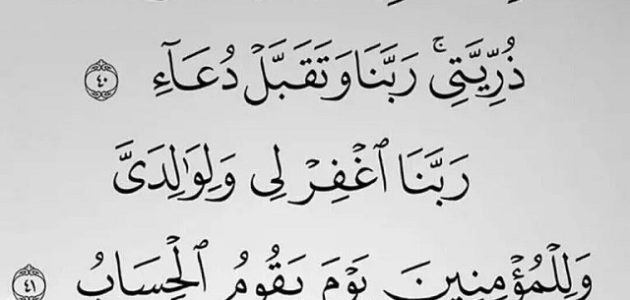 ذُرِّيَّتِىۚ رَبَّنَا وَتَقَبَّلۡ دُعَآءِ ٤٠
رَبَّنَا ٱغۡفِرۡ لِى وَلِوَٰلِدَىَّ
وَلِلۡمُؤۡمِنِينَ يَوۡمَ يَقُومُ ٱلۡحِسَابُ ٤١